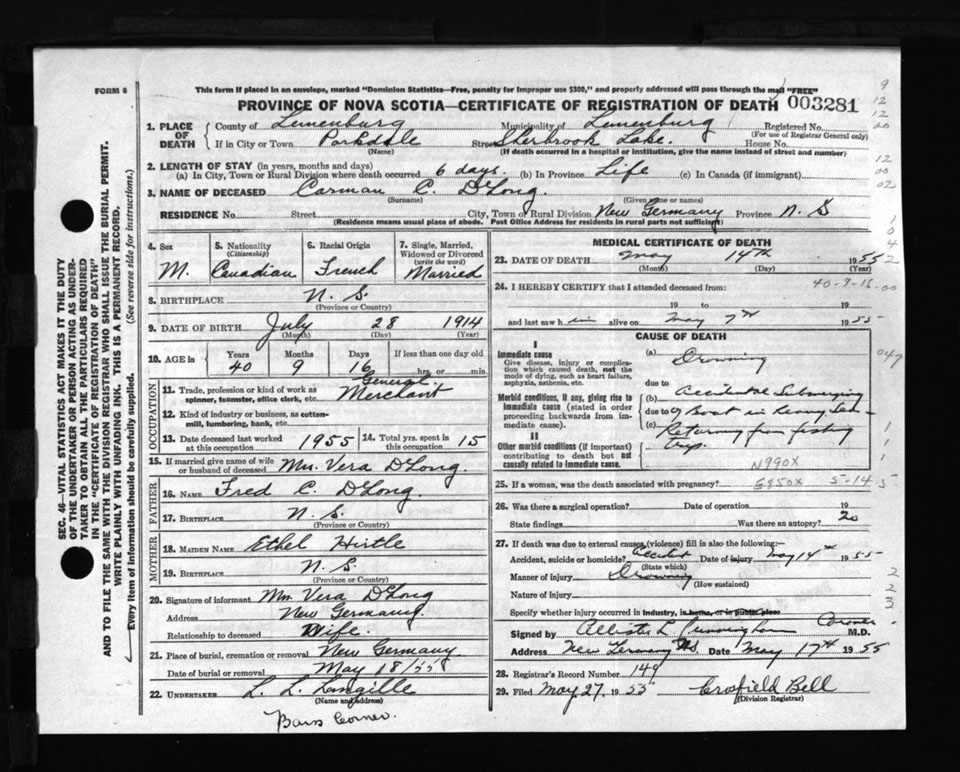 FORM 6
This form if placed in an envelope, marked "Dominion Statistics—Free, penalty for improper use $300," and properly addressed will pass through the mail "FREE"
PROVINCE OF NOVA SCOTIA—CERTIFICATE OF REGISTRATION OF DEATH 003281
1. PLACE OF DEATH County of Lunenburg Municipality of Lunenburg Registered No.
(For use of Registrar General only)
If in City or Town Parkdale Street Sherbrook Lake. House No.
(Name) (If death occurred in a hospital or institution, give the name instead of street and number)
2. LENGTH OF STAY (in years, months and days)
(a) In City, Town or Rural Division where death occurred 6 days. (b) In Province Life (c) In Canada (if immigrant)
3. NAME OF DECEASED Carman C. DeLong.
(Surname) (Given name or names)
RESIDENCE No. Street City, Town or Rural Division New Germany Province N. S
(Residence means usual place of abode. Post Office Address for residents in rural parts not sufficient)
4. Sex M.
5. Nationality (Citizenship) Canadian
6. Racial Origin French
7. Single, Married, Widowed or Divorced (write the word) Married
8. BIRTHPLACE N. S.
(Province or Country)
9. DATE OF BIRTH July 28 1914
(Month) (Day) (Year)
10. AGE in Years 40 Months 9 Days 16 If less than one day old hrs. or min.
OCCUPATION
11. Trade, profession or kind of work as spinner, teamster, office clerk, etc. General Merchant
12. Kind of industry or business, as cotton-mill, lumbering, bank, etc.
13. Date deceased last worked at this occupation 1955 14. Total yrs. spent in 15
15. If married give name of wife or husband of deceased Mrs. Vera DeLong.
FATHER
16. NAME Fred C. DeLong.
17. BIRTHPLACE N. S.
(Province or Country)
MOTHER
18. MAIDEN NAME Ethel Hirtle
19. BIRTHPLACE N. S.
(Province or Country)
20. Signature of informant Mrs Vera DeLong
Address New Germany.
Relationship to deceased Wife.
21. Place of burial, cremation or removal New Germany
Date of burial or removal May 18/55
22. UNDERTAKER L. L. Langille
(Name and address)
Bars Corner.
MEDICAL CERTIFICATE OF DEATH
23. DATE OF DEATH May 14th 1955
(Month) (Day) (Year)
24. I HEREBY CERTIFY that I attended deceased from: 40-9-16
19 to 19
and last saw him alive on May 7th 1955
CAUSE OF DEATH
I
Immediate cause
Give disease, injury or complication which caused death, not the mode of dying, such as heart failure, asphyxia, asthenia, etc.
(a) Drowning
due to
Morbid conditions, if any, giving rise to immediate cause (stated in order proceeding backwards from immediate cause).
(b) Accidental Submerging
due to of Boat in Heavy Sea—
(c) Returning from fishing trip.
II
Other morbid conditions (if important) contributing to death but not causally related to immediate cause.
N990X
E850X 5-14
25. If a woman, was the death associated with pregnancy?
26. Was there a surgical operation? Date of operation 19
State findings Was there an autopsy? no
27. If death was due to external causes (violence) fill in also the following:
Accident, suicide or homicide? Accident Date of injury May 14th 1955
(State which)
Manner of injury Drowning
(How sustained)
Nature of injury
Specify whether injury occurred in industry, in home, or in public place
Signed by Allister L Cunningham Coroner M.D.
Address New Germany NS. Date May 17th 1955
28. Registrar's Record Number 149
29. Filed May 27, 1955 Crofield Bell
(Division Registrar)
SEC. 46—VITAL STATISTICS ACT MAKES IT THE DUTY OF THE UNDERTAKER OR PERSON ACTING AS UNDERTAKER TO OBTAIN ALL THE PARTICULARS REQUIRED IN THE "CERTIFICATE OF REGISTRATION OF DEATH" AND TO FILE THE SAME WITH THE DIVISION REGISTRAR WHO SHALL ISSUE THE BURIAL PERMIT.
WRITE PLAINLY WITH UNFADING INK. THIS IS A PERMANENT RECORD.
Every item of information should be carefully supplied. (See reverse side for instructions.)